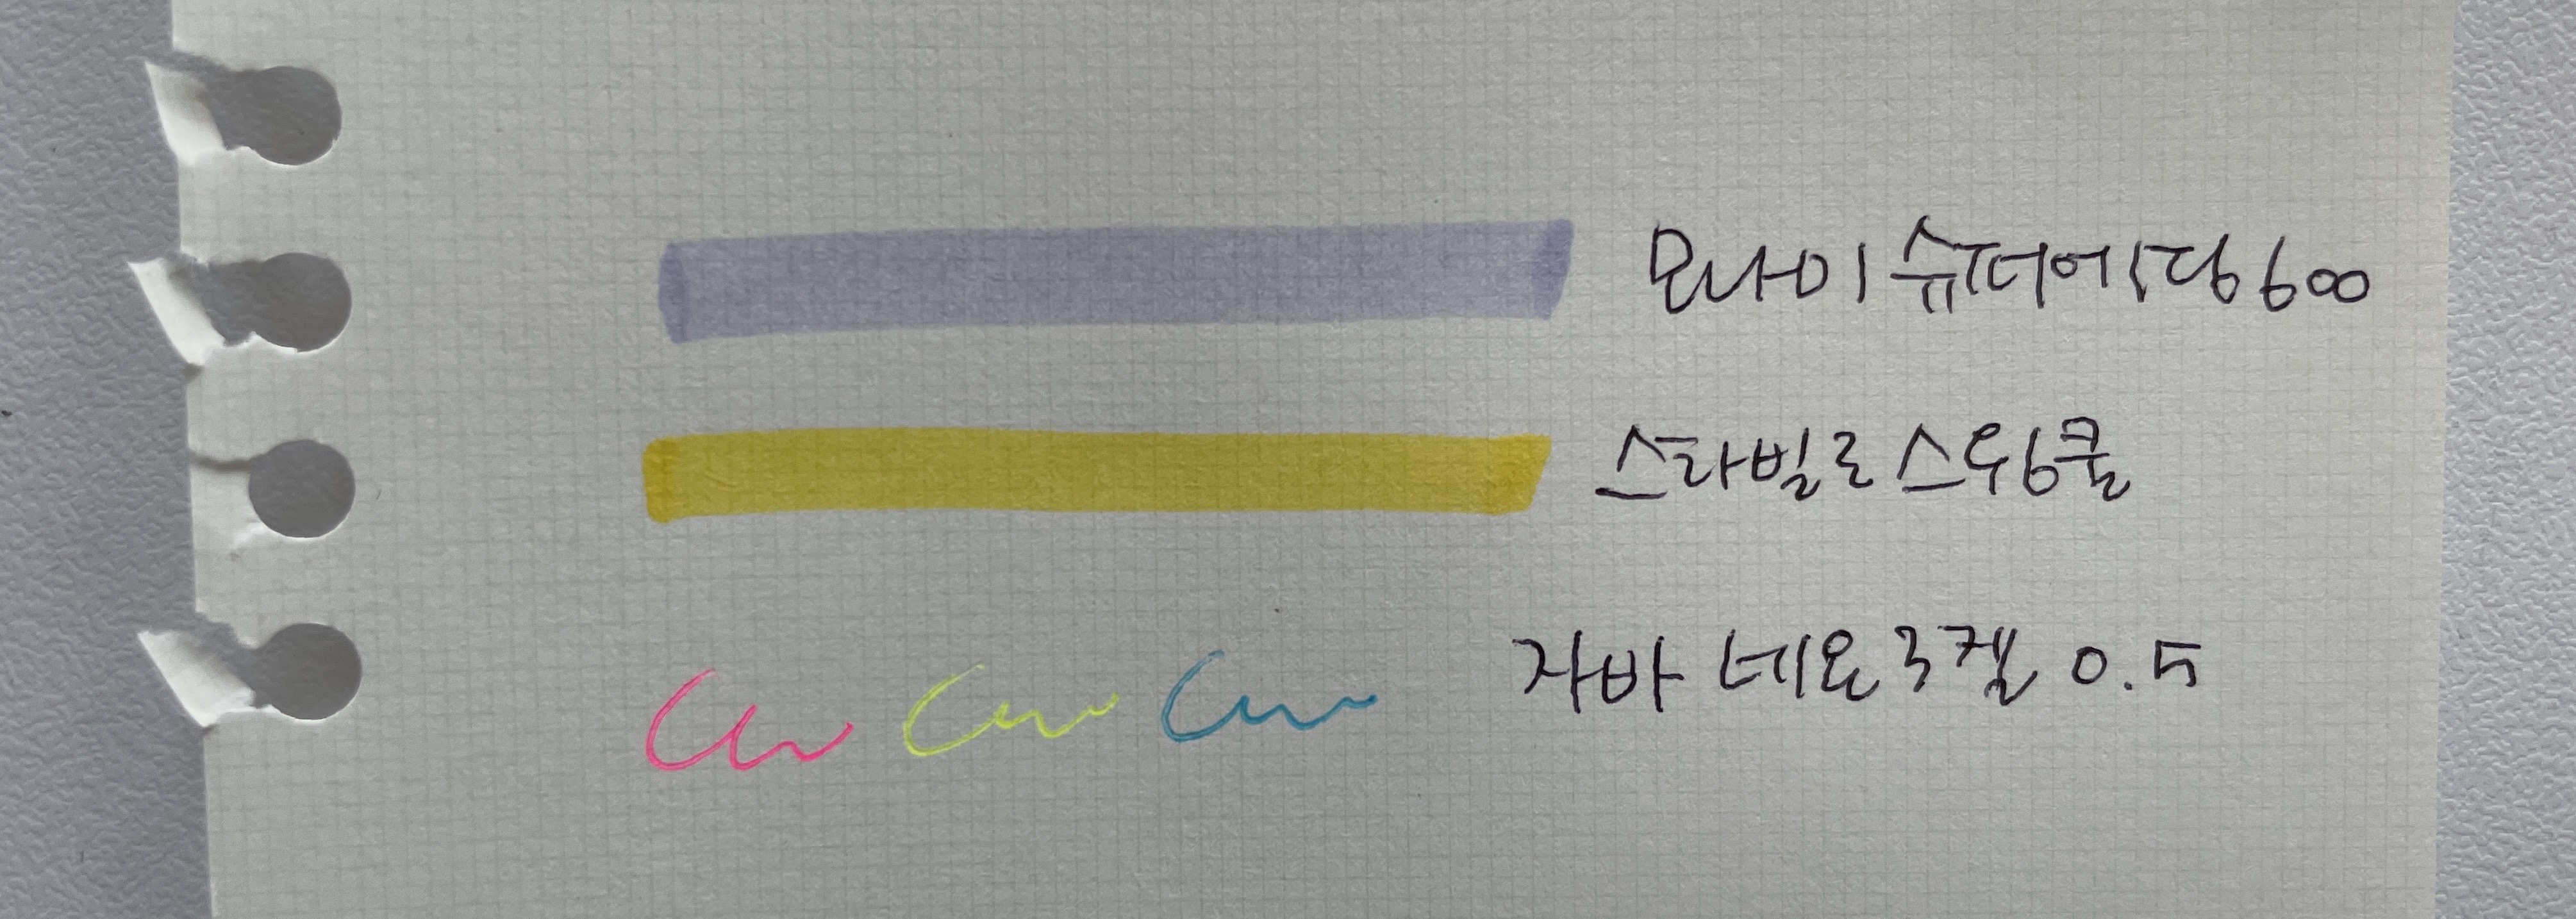 모나미 슈퍼에딩600
스타빌로 스윙쿨
자바 네온3겔 0.5